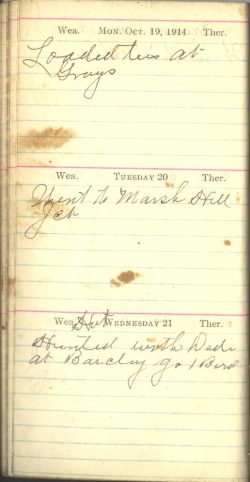 Wea. MON. OCT. 19, 1914 Ther.
Loaded ties at
Grays
Wea. TUESDAY 20 Ther.
Went to Marsh Hill
Jct
Wea Hot WEDNESDAY 21 Ther.
Hunted with Dad
at Barclay got 1 Bird